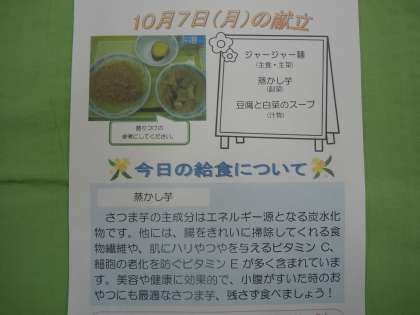 10月7日(月)の献立
ジャージャー麺
(主食・主菜)
蒸かし芋
(副菜)
豆腐と白菜のスープ
(汁物)
盛りつけの
参考にしてください。
今日の給食について
蒸かし芋
さつま芋の主成分はエネルギー源となる炭水化
物です。他には、腸をきれいに掃除してくれる食
物繊維や、肌にハリやつやを与えるビタミンC、
細胞の老化を防ぐビタミンEが多く含まれていま
す。美容や健康に効果的で、小腹がすいた時のお
やつにも最適なさつま芋、残さず食べましょう！